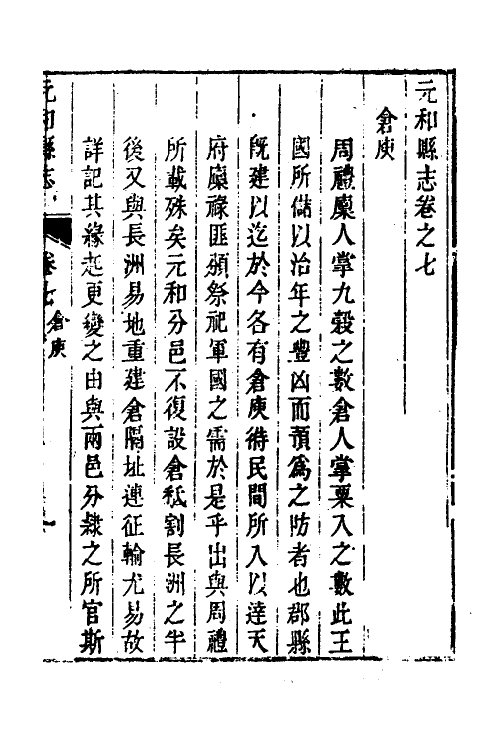 元和縣志卷之七
倉庾
周禮廩人掌九穀之數倉人掌粟入之數此王
國所儲以治年之豐凶而預爲之防者也郡縣
旣建以迄於今各有倉庾待民間所入以達天
府廩祿匪頒祭祀軍國之需於是乎出與周禮
所載殊矣元和分邑不復設倉秪割長洲之半
後又與長洲易地重建倉隔址連征輸尤易故
詳記其緣起更變之由與兩邑分隸之所官斯
元和縣志
卷七 倉庾